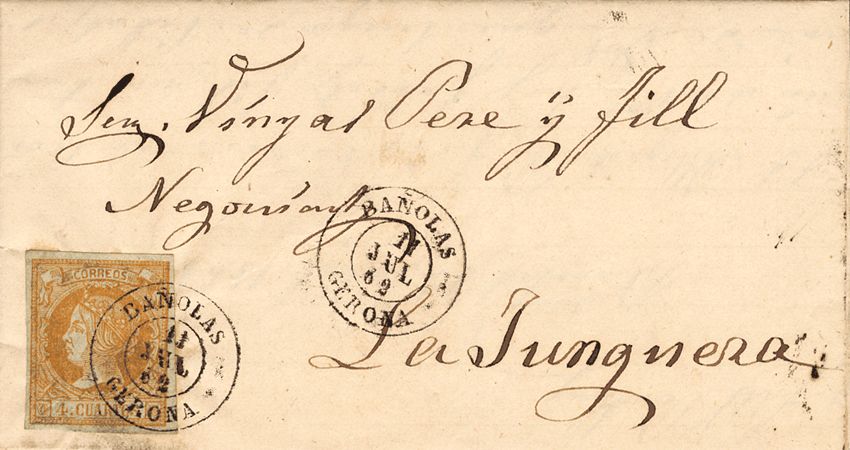 Senr. Vinyas Pere y fill
Negociant
BAÑOLAS
11
JUL
62
GERONA
La Junquera
CORREOS
4. CUAR
BAÑOLAS
11
JUL
62
GERONA